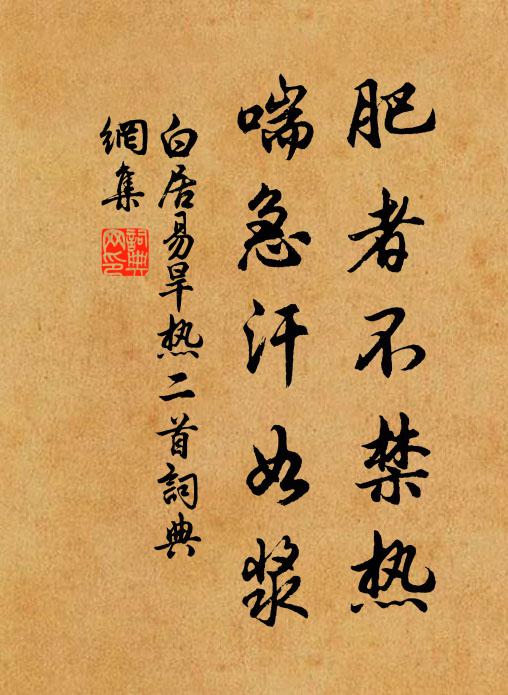 肥者不禁热
喘急汗如浆
白居易旱热二首詞典
網集
詞典網印